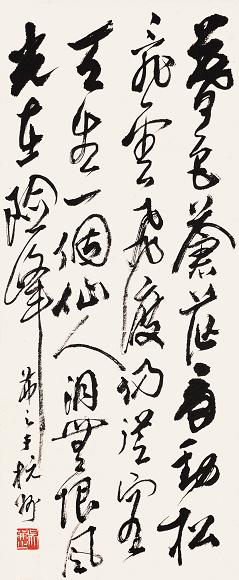 暮色蒼茫看勁松
亂雲飛渡仍從容
天生一個仙人洞無限風
光在險峰
茀之于杭州